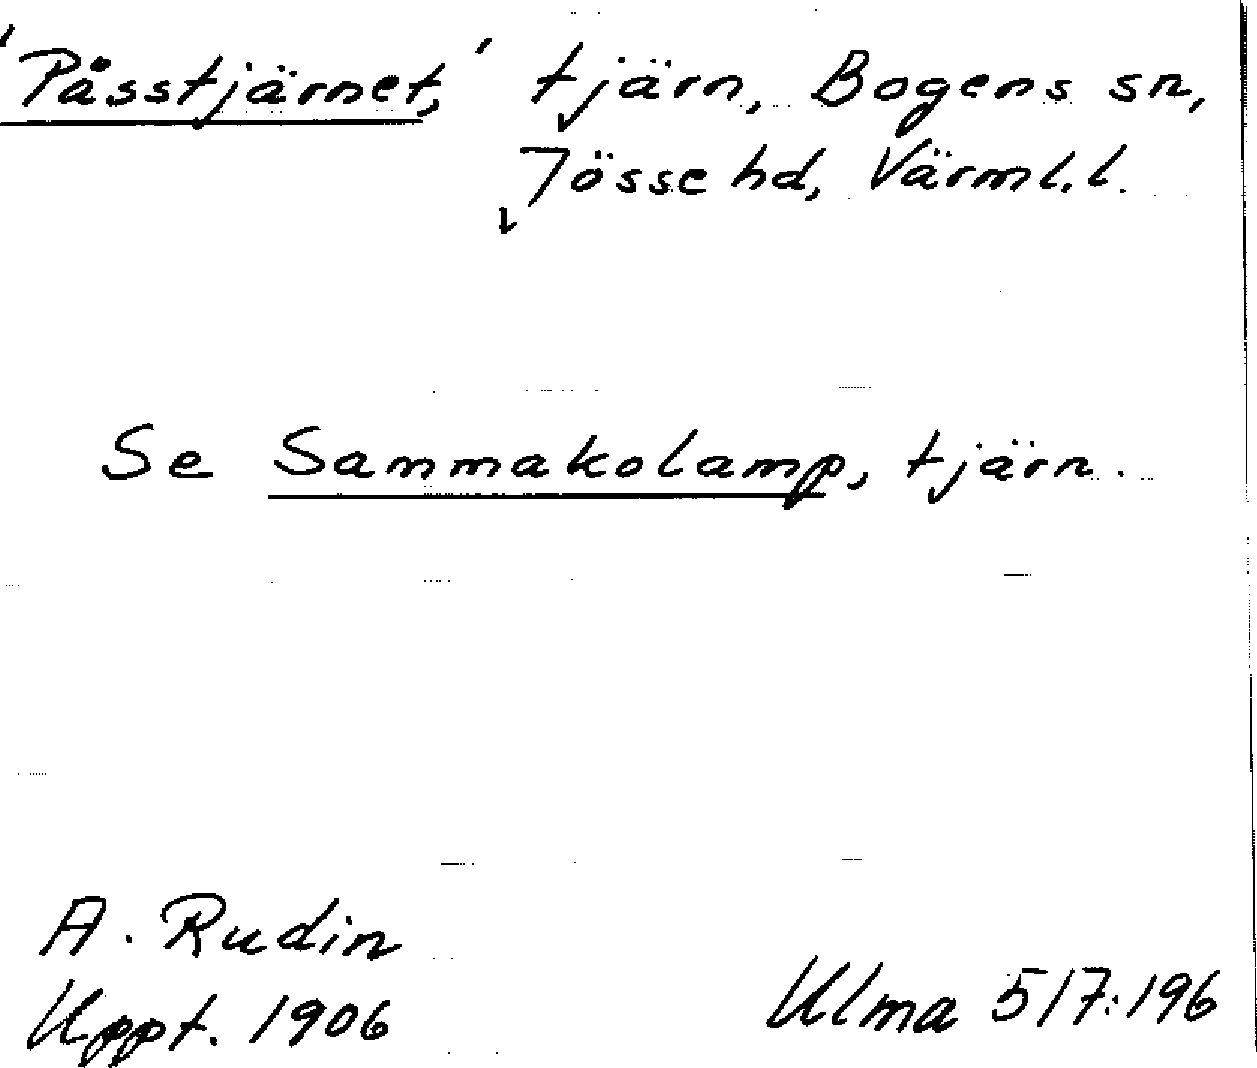 'Påsstjärnet,' tjärn, Bogens sn,
Jösse hd, Värml.l.
Se Sammakolamp, tjärn.
A. Rudin
Uppt. 1906
Ulma 517:196